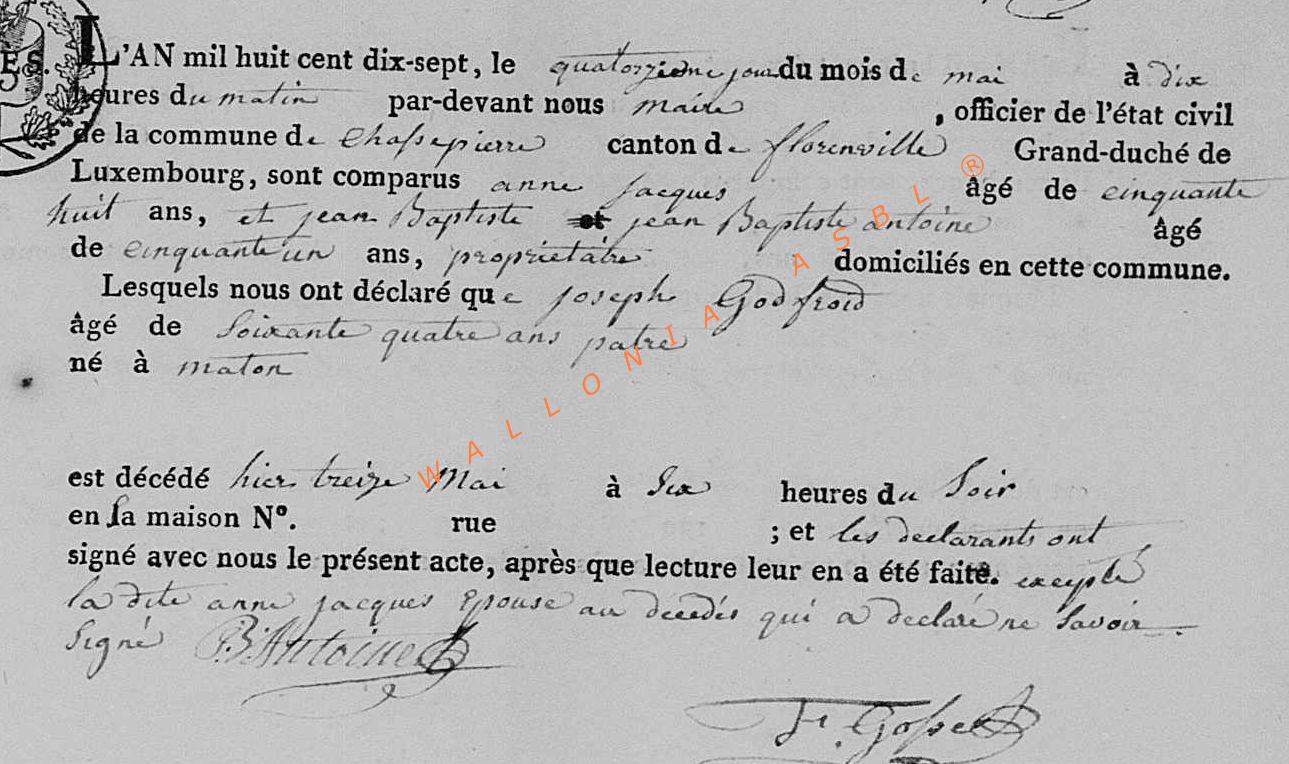 ES.
L'AN mil huit cent dix-sept, le quatorzieme jour du mois de mai à dix
heures du matin par-devant nous maire , officier de l'état civil
de la commune de Chassepierre canton de florenville Grand-duché de
Luxembourg, sont comparus anne jacques âgé de cinquante
huit ans, et jean Baptiste et jean Baptiste antoine âgé
de cinquante un ans, propriétaire domiciliés en cette commune.
Lesquels nous ont déclaré que joseph Godfroid
âgé de Soixante quatre ans patre
né à maton
est décédé hier treize Mai à Six heures du Soir
en sa maison N°. rue ; et les declarants ont
signé avec nous le présent acte, après que lecture leur en a été faite. excepté
la dite anne jacques Epouse au decedés qui a declaré ne Savoir
Signé B. Antoine
Gosse
WALLONIA ASBL®